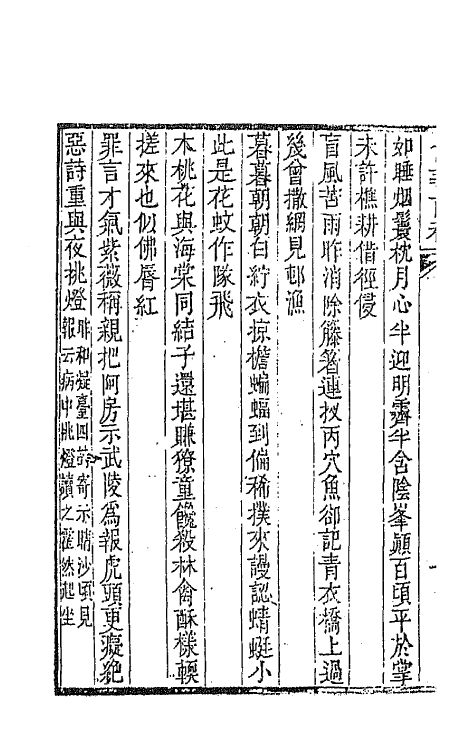 如睡烟鬟枕月心半迎明霽半含陰峯巓百頃平於掌
未許樵耕借徑侵
盲風苦雨昨消除籐箬連扠丙穴魚卻記青衣橋上過
幾曾撒網見邨漁
暮暮朝朝白紵衣掠檐蝙蝠到偏稀撲來謾認蜻蜓小
此是花蚊作隊飛
木桃花與海棠同結子還堪賺獠童饞殺林禽酥樣輭
搓來也似佛脣紅
罪言才氣紫薇稱親把阿房示武陵爲報虎頭更癡絕
惡詩重與夜挑燈昨和凝臺四詩寄示晴沙頃見
報云病中挑燈讀之霍然起坐